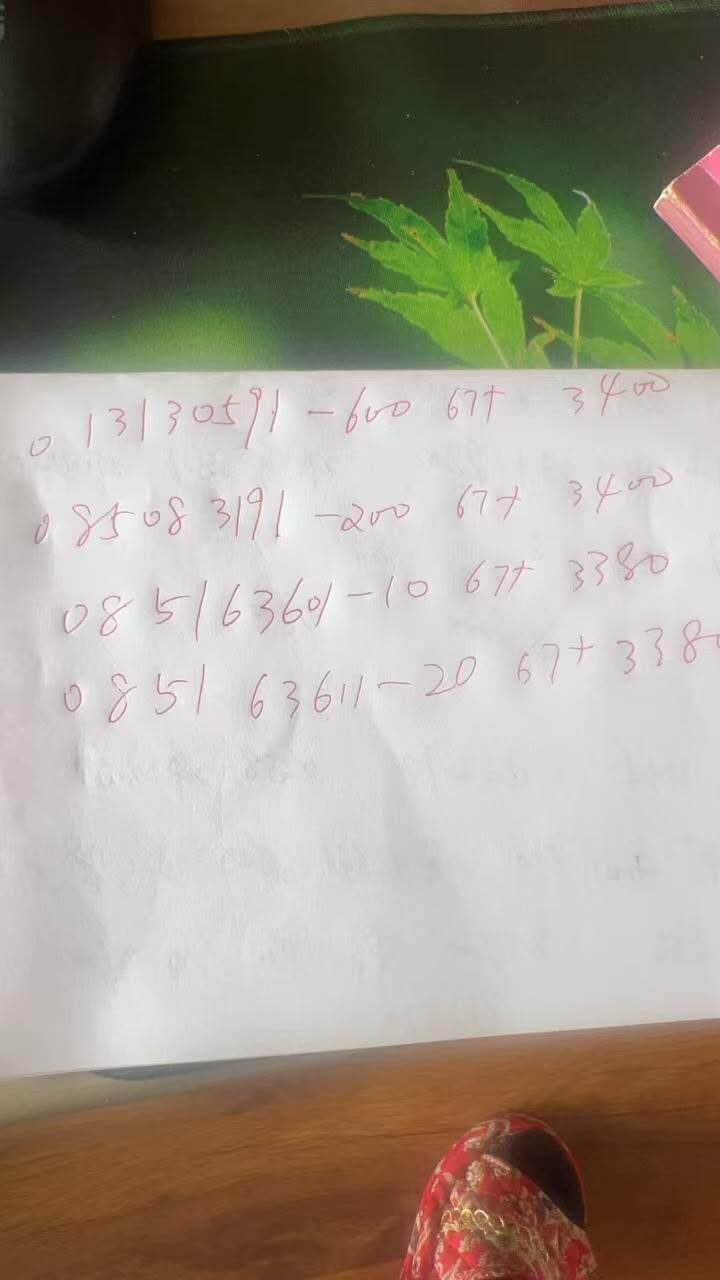 013130591-600 67+ 3400
085083191-200 67+ 3400
085163601-10 67+ 3380
0851 63611-20 67+ 3380